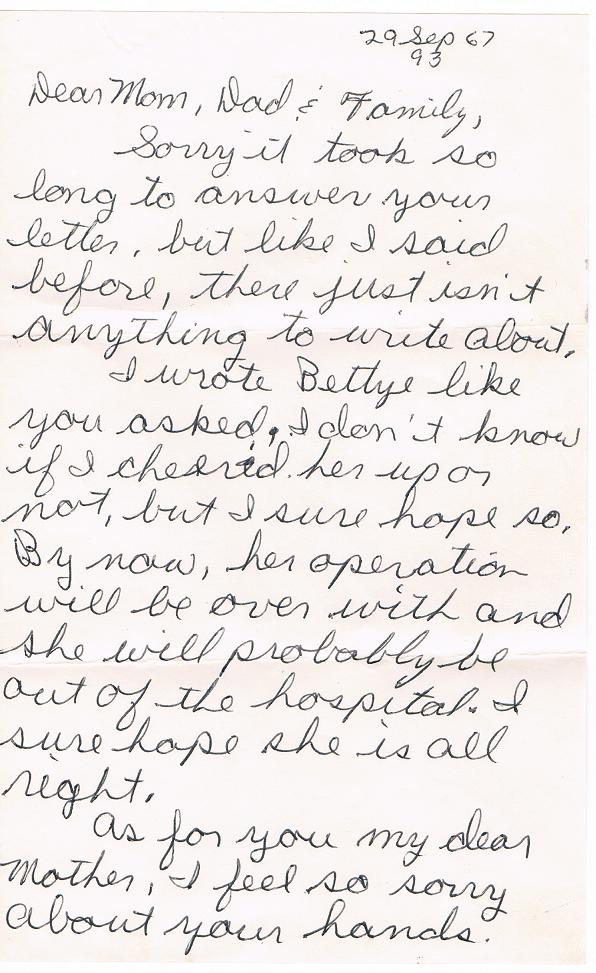 29 Sep 67
93
Dear Mom, Dad & Family,
Sorry it took so
long to answer your
letter, but like I said
before, there just isn't
anything to write about.
I wrote Bettye like
you asked, I don't know
if I cheered her up or
not, but I sure hope so.
By now, her operation
will be over with and
she will probably be
out of the hospital. I
sure hope she is all
right.
As for you my dear
Mother, I feel so sorry
about your hands.